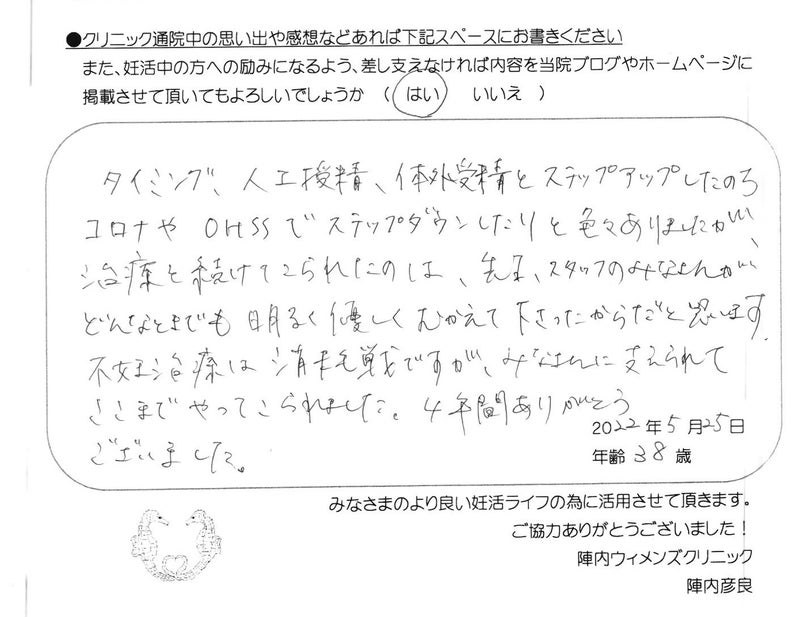 ●クリニック通院中の思い出や感想などあれば下記スペースにお書きください
また、妊活中の方への励みになるよう、差し支えなければ内容を当院ブログやホームページに
掲載させて頂いてもよろしいでしょうか （ はい いいえ ）
タイミング、人工授精、体外受精とステップアップしたのち
コロナや OHSSでステップダウンしたりと色々ありましたが、
治療を続けてこられたのは、先生、スタッフのみなさんが、
どんなときでも明るく優しくむかえて下さったからだと思います。
不妊治療は消耗戦ですが、みなさんに支えられて
ここまでやってこられました。4年間ありがとう
ございました。
2022年5月25日
年齢38歳
みなさまのより良い妊活ライフの為に活用させて頂きます。
ご協力ありがとうございました！
陣内ウィメンズクリニック
陣内彦良